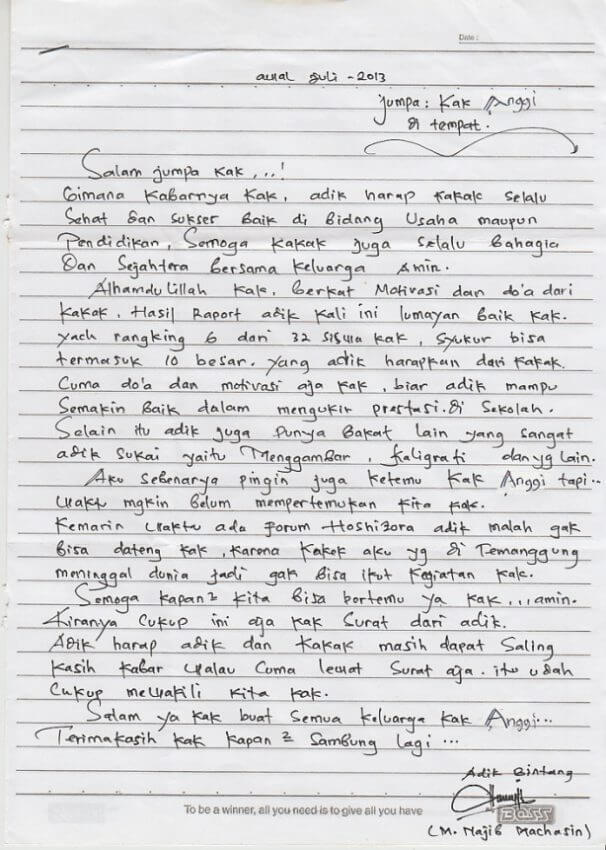 Date :
awal Juli - 2013
Jumpa : Kak Anggi
di tempat.
Salam jumpa kak,...!
Gimana kabarnya kak, adik harap kakak selalu
Sehat dan sukses Baik di Bidang Usaha maupun
Pendidikan, Semoga kakak juga selalu Bahagia
Dan Sejahtera Bersama keluarga Amin.
Alhamdulillah kak, Berkat Motivasi dan do'a dari
kakak, Hasil Raport adik kali ini lumayan Baik kak.
yach rangking 6 dari 32 siswa kak, syukur bisa
termasuk 10 besar. yang adik harapkan dari kakak.
Cuma do'a dan motivasi aja kak, biar adik mampu
Semakin Baik dalam mengukir prestasi di Sekolah.
Selain itu adik juga punya Bakat lain yang sangat
adik sukai yaitu Menggambar, kaligrafi dan yg lain.
Aku sebenarya pingin juga ketemu kak Anggi tapi..
waktu mgkin Belum mempertemukan kita kak.
Kemarin waktu ada Forum Hoshizora adik malah gak
Bisa dateng kak, karena kakek aku yg di Temanggung
meninggal dunia jadi gak Bisa ikut kegiatan kak.
Semoga kapan² kita Bisa bertemu ya kak,...amin.
Kiranya Cukup ini aja kak Surat dari adik.
Adik harap adik dan kakak masih dapat Saling
kasih kabar walau Cuma lewat Surat aja. itu udah
Cukup mewakili kita kak.
Salam ya kak buat Semua keluarga kak Anggi...
Terimakasih kak kapan² Sambung lagi ...
Adik Bintang
To be a winner, all you need is to give all you have
BOSS
(M. Najib Machasin)